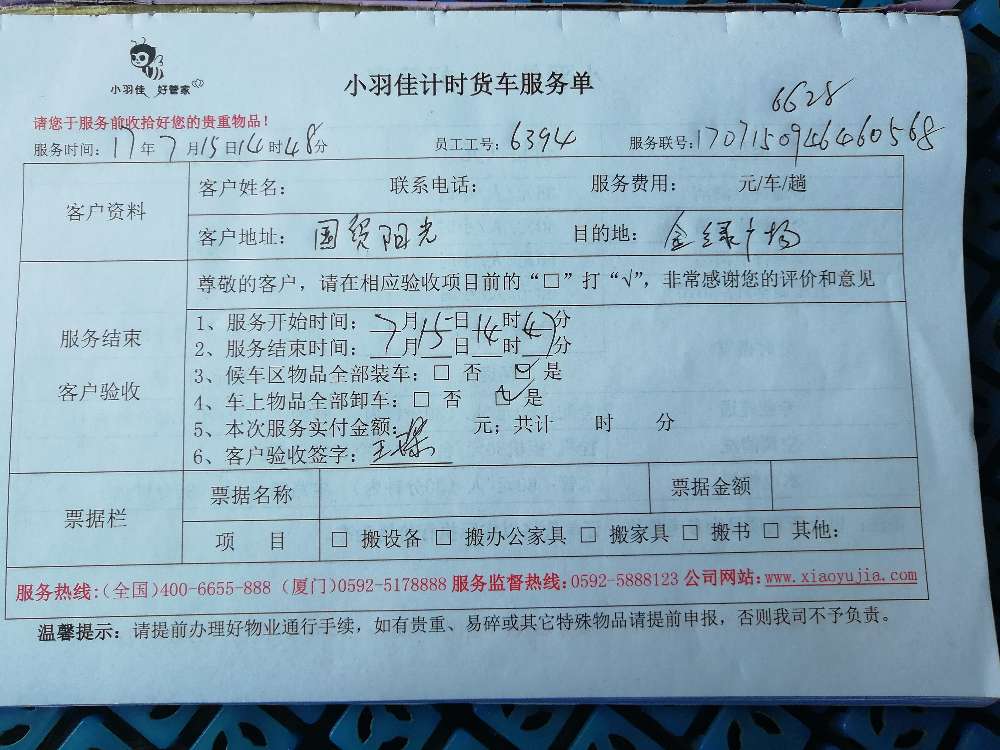 小羽佳 好管家
小羽佳计时货车服务单
6628
请您于服务前收拾好您的贵重物品！
服务时间：17年7月15日14时48分 员工工号：6394 服务联号：170715094646 0568
客户资料
客户姓名： 联系电话： 服务费用： 元/车/趟
客户地址：国贸阳光 目的地：金绿广场
服务结束
客户验收
尊敬的客户，请在相应验收项目前的“□”打“√”，非常感谢您的评价和意见
1、服务开始时间：7月15日14时47分
2、服务结束时间：__月__日__时__分
3、候车区物品全部装车：□ 否 ☑ 是
4、车上物品全部卸车：□ 否 ☑ 是
5、本次服务实付金额： 元；共计 时 分
6、客户验收签字：王
票据栏
票据名称 票据金额
项 目 □ 搬设备 □ 搬办公家具 □ 搬家具 □ 搬书 □ 其他：
服务热线:(全国)400-6655-888 (厦门)0592-5178888 服务监督热线:0592-5888123 公司网站:www.xiaoyujia.com
温馨提示：请提前办理好物业通行手续，如有贵重、易碎或其它特殊物品请提前申报，否则我司不予负责。